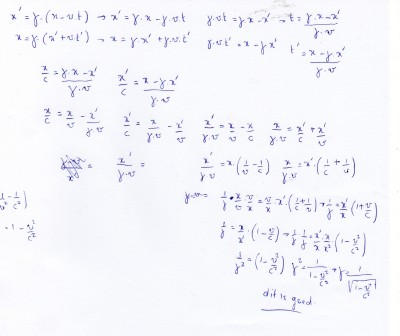 x' = γ.(x-vt) → x' = γ.x - γ.v.t   γ.v.t = γx - x' → t = γ.x-x' / γ.v
x = γ.(x'+vt') → x = γx' + γ.v.t'   γ.v.t' = x - γx'   t' = x-γx' / γ.v
x/c = γ.x-x' / γ.v   x'/c = x-γx' / γ.v
x/c = x/v - x'/γ.v   x'/c = x/γ.v - x'/v   x'/γ.v = x/v - x/c   x/γ.v = x'/c + x'/v
x'/γ.v =   x'/γ.v = x.(1/v - 1/c)   x/γ.v = x'.(1/c + 1/v)
1/γ . x/v . v/x = v/x x'.(1/c + 1/v) → 1/γ = x'/x (1 + v/c)
1/v² - 1/c²)
1/γ = x/x' . (1 - v/c) → 1/γ 1/γ = x'/x . x/x' (1 - v²/c²)
= 1 - v²/c²
1/γ² = (1 - v²/c²)   γ² = 1 / 1 - v²/c² → γ = 1 / √(1 - v²/c²)
dit is goed.